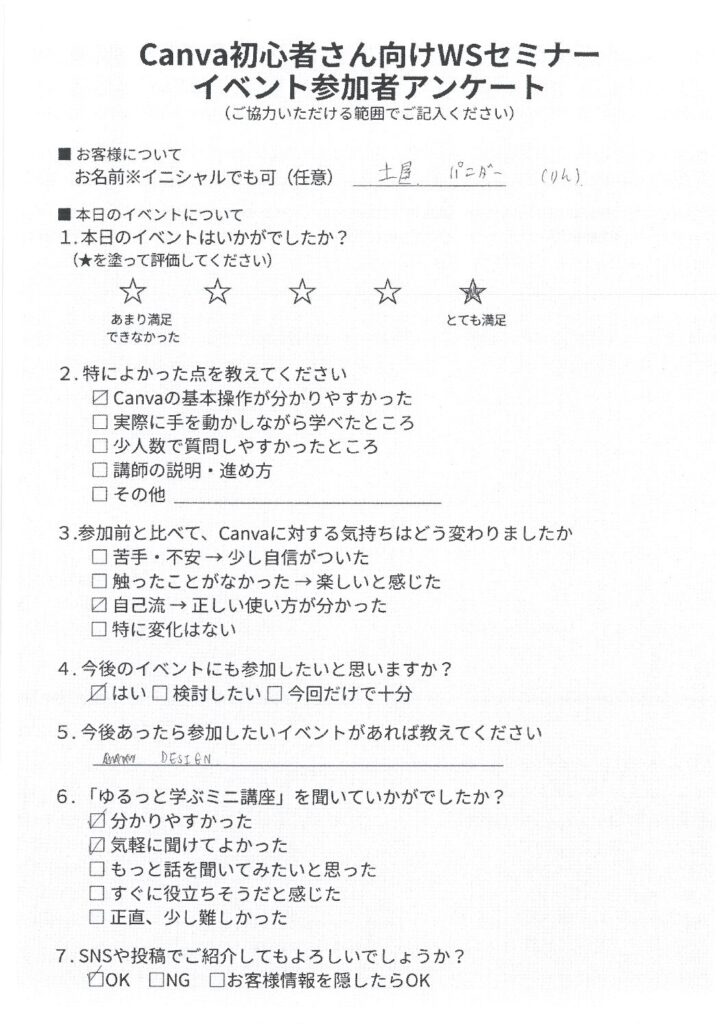 Canva初心者さん向けWSセミナー
イベント参加者アンケート
（ご協力いただける範囲でご記入ください）
■ お客様について
お名前※イニシャルでも可（任意） 土屋 バニガー （りん）
■ 本日のイベントについて
１.本日のイベントはいかがでしたか？
（★を塗って評価してください）
☆ ☆ ☆ ☆ ★
あまり満足 とても満足
できなかった
２. 特によかった点を教えてください
☑ Canvaの基本操作が分かりやすかった
☐ 実際に手を動かしながら学べたところ
☐ 少人数で質問しやすかったところ
☐ 講師の説明・進め方
☐ その他
３.参加前と比べて、Canvaに対する気持ちはどう変わりましたか
☐ 苦手・不安 → 少し自信がついた
☐ 触ったことがなかった → 楽しいと感じた
☑ 自己流 → 正しい使い方が分かった
☐ 特に変化はない
４. 今後のイベントにも参加したいと思いますか？
☑ はい ☐ 検討したい ☐ 今回だけで十分
５. 今後あったら参加したいイベントがあれば教えてください
DESIGN
６. 「ゆるっと学ぶミニ講座」を聞いていかがでしたか？
☑ 分かりやすかった
☑ 気軽に聞けてよかった
☐ もっと話を聞いてみたいと思った
☐ すぐに役立ちそうだと感じた
☐ 正直、少し難しかった
７. SNSや投稿でご紹介してもよろしいでしょうか？
☑OK ☐NG ☐お客様情報を隠したらOK